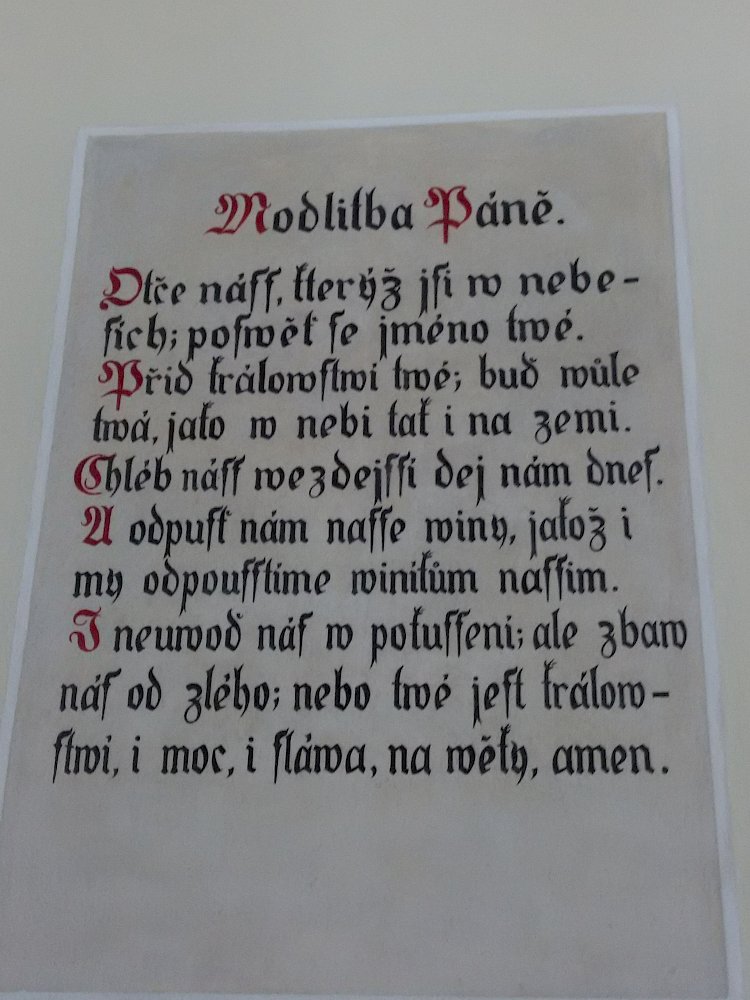 Modlitba Páně.
Otče náſſ, kterýž jſi w nebe-
ſích; poſwěť ſe jméno twé.
Přiď králowſtwí twé; buď wůle
twá, jako w nebi tak i na zemi.
Chléb náſſ wezdejſſí dej nám dneſ.
A odpuſť nám naſſe winy, jakož i
my odpouſſtíme winikům naſſim.
I neuwoď náſ w pokuſſení; ale zbaw
náſ od zlého; nebo twé jeſt králow-
ſtwí, i moc, i ſláwa, na wěky, amen.